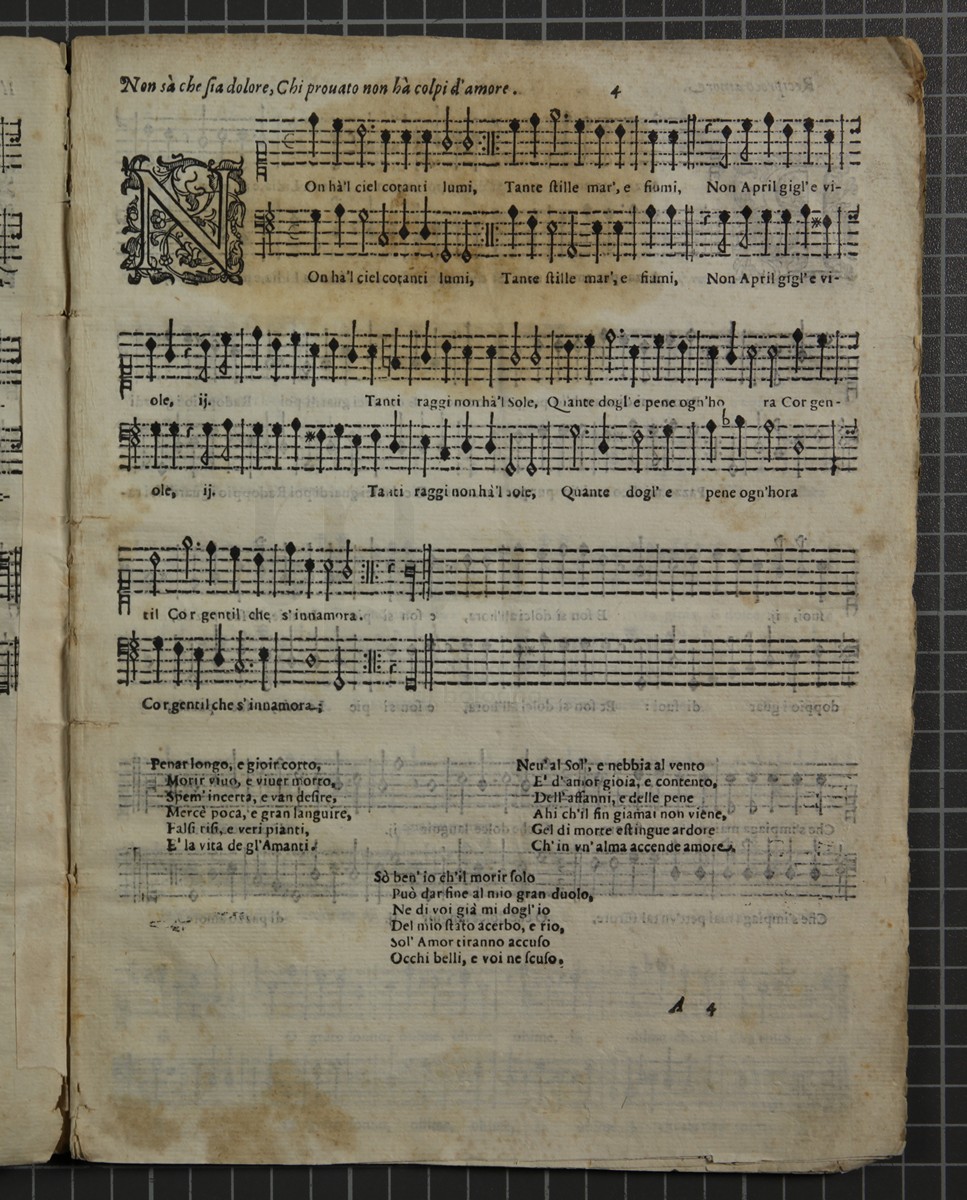 Non sà che ſia dolore, Chi prouato non hà colpi d'amore. 4
NOn hà'l ciel cotanti lumi, Tante ſtille mar', e fiumi, Non April gigl' e vi-
On hà'l ciel cotanti lumi, Tante ſtille mar', e fiumi, Non April gigl' e vi-
ole, ij. Tanti raggi non hà'l Sole, Quante dogl' e pene ogn'ho ra Cor gen-
ole, ij. Tanti raggi non hà'l sole, Quante dogl' e pene ogn'hora
til Cor gentil che s'innamora.
Cor gentil che s'innamora.
Penar longo, e gioir corto,
Morir viuo, e viuer morto,
Spem' incerta, e van deſire,
Mercè poca, e gran languire,
Falſi riſi, e veri pianti,
E' la vita de gl'Amanti.
Neu' al Sol', e nebbia al vento
E' d'amor gioia, e contento,
Dell' affanni, e delle pene
Ahi ch'il fin giamai non viene,
Gel di morte eſtingue ardore
Ch' in vn' alma accende amore.
Sò ben' io ch'il morir ſolo
Può dar fine al mio gran duolo,
Ne di voi già mi dogl' io
Del mio ſtato acerbo, e rio,
Sol' Amor tiranno accuſo
Occhi belli, e voi ne ſcuſo.
A 4